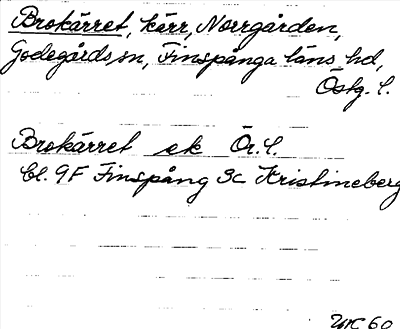 Brokärret, kärr, Norrgården,
Godegårds sn, Finspånga läns hd,
Östg. l.
Brokärret ek Ör. l.
bl. 9F Finspång 3c Kristineberg
60